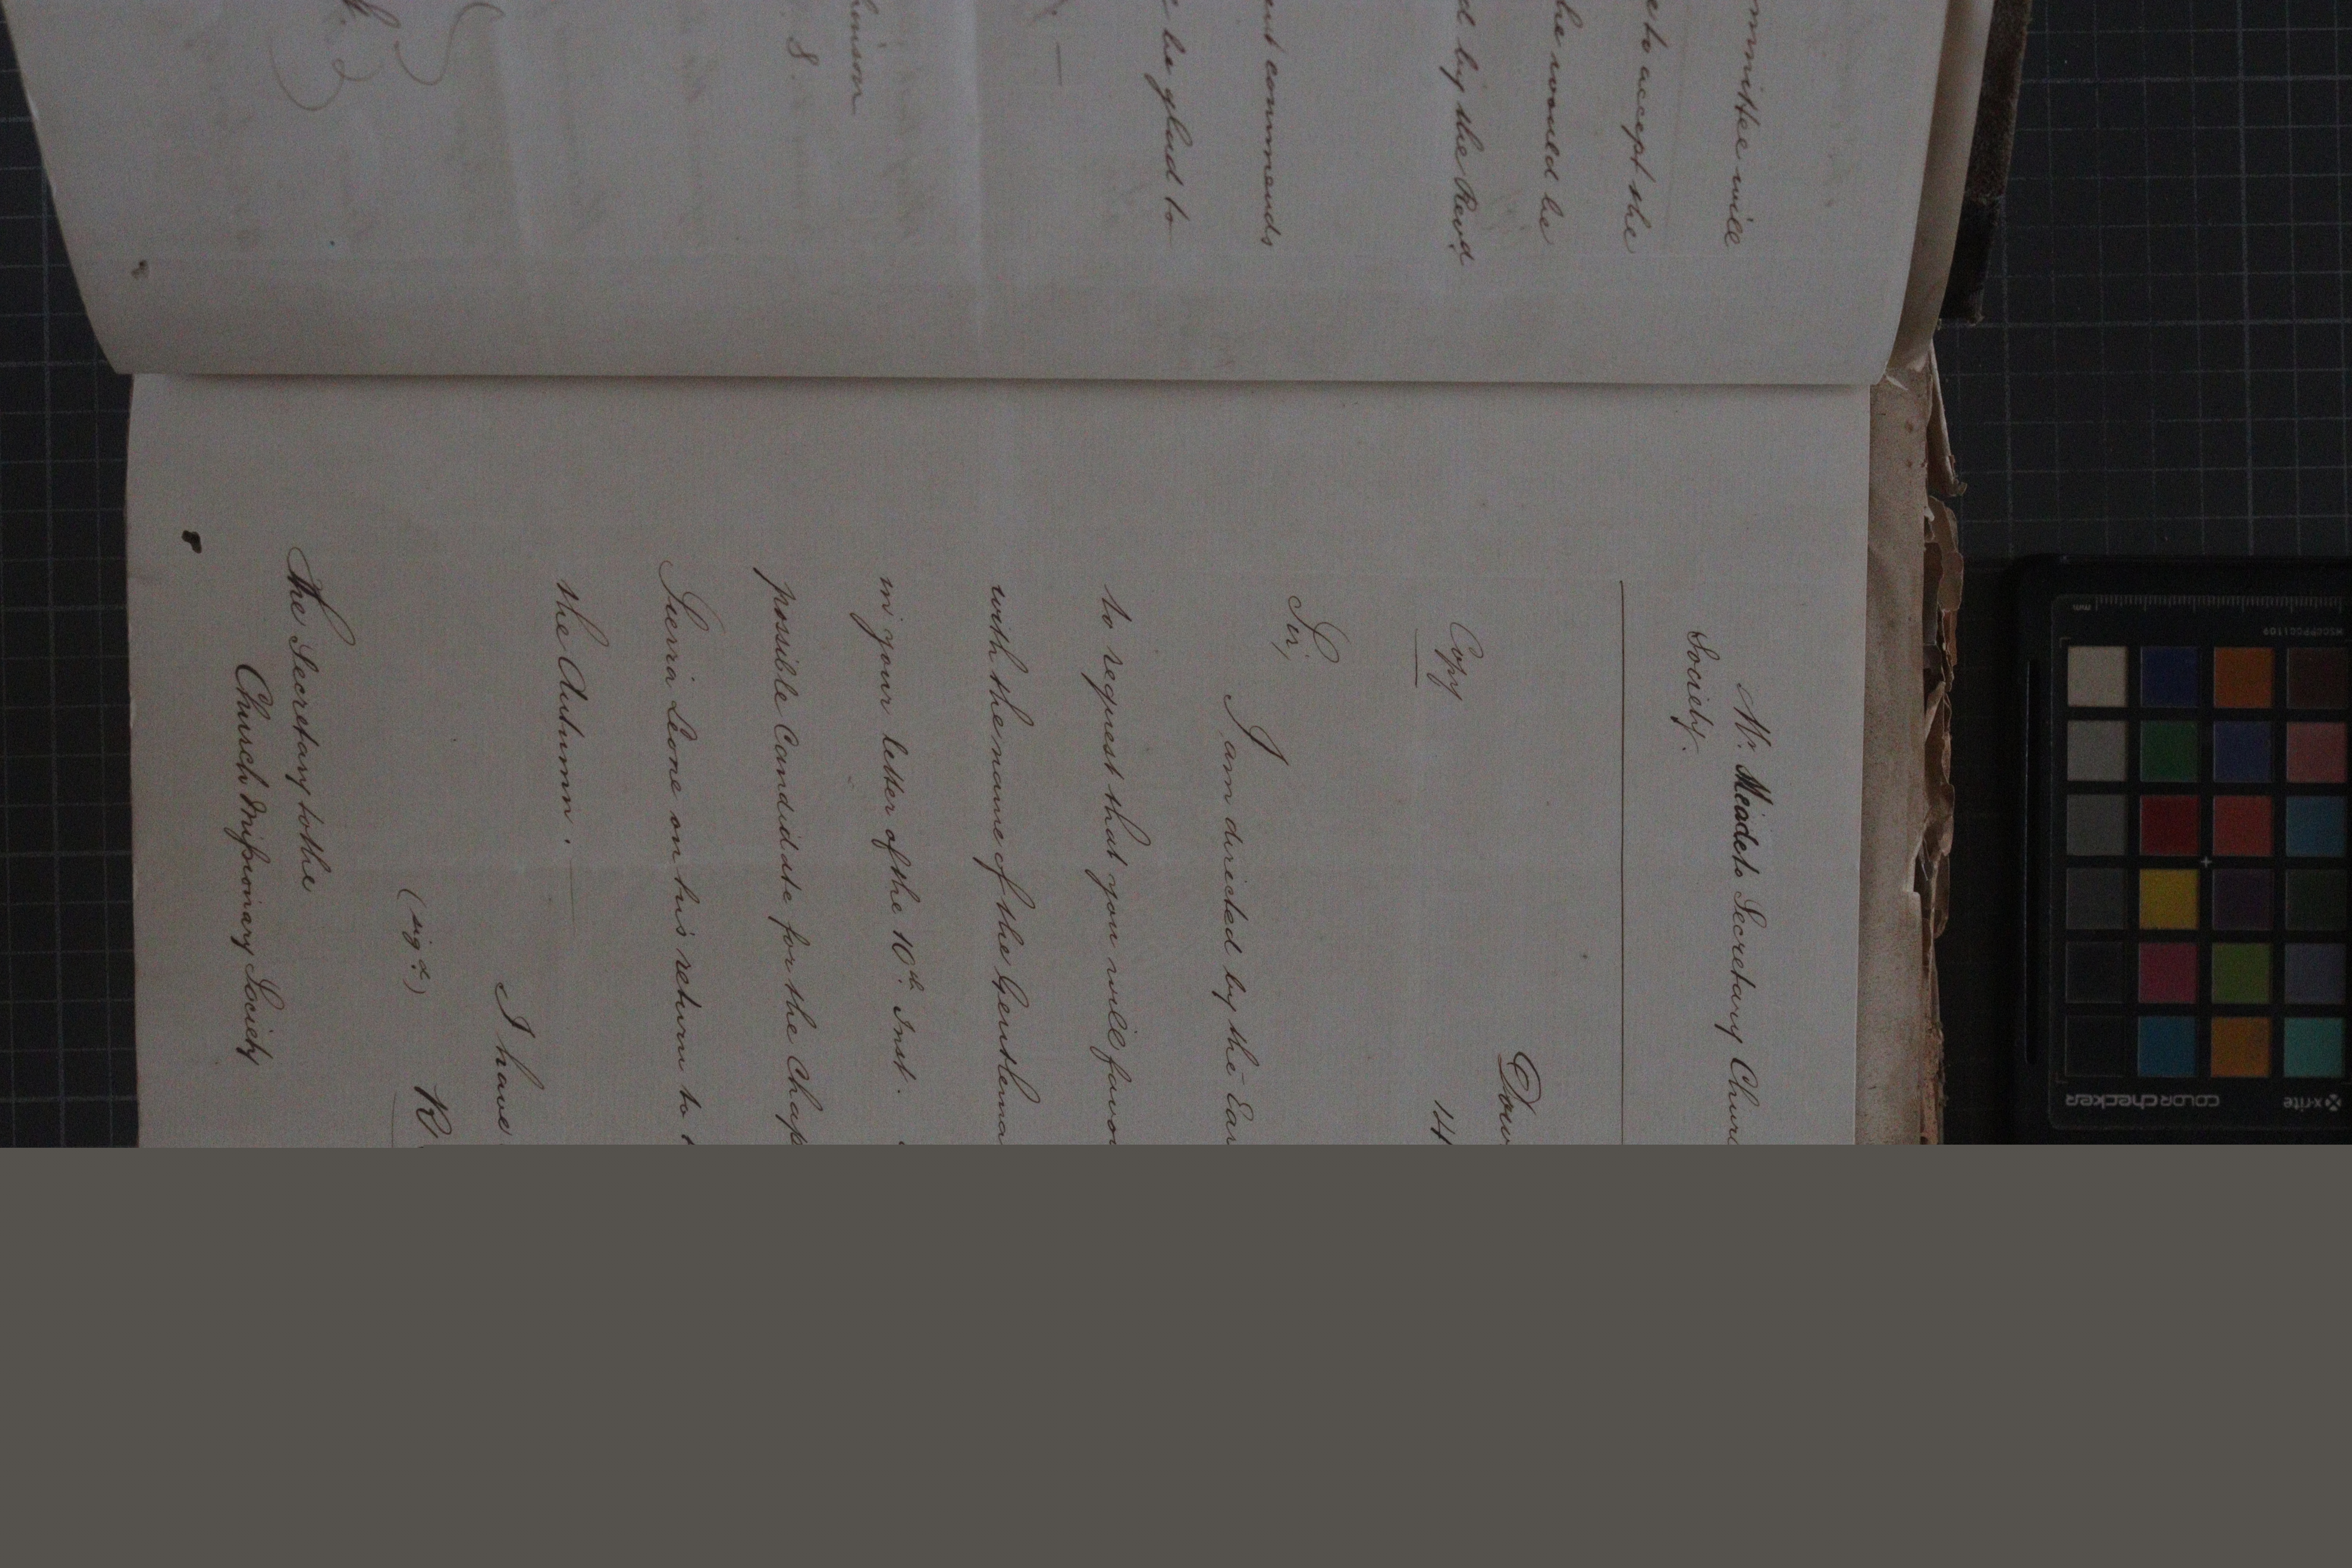 mmittee will
e to accept the
he would be
d by the Revd
ent commends
be glad to
8.
W. Meade to Secretary Church
Society.
Copy
Sir,
I am directed by the Ear
to request that you will favo
with the name of the Gentlema
in your letter of the 10th. Inst.
possible Candidate for the Chap
Sierra Leone on his return to
the Autumn.
I have
(sigd.)
The Secretary to the
Church Missionary Society
x-rite
colorchecker
mm